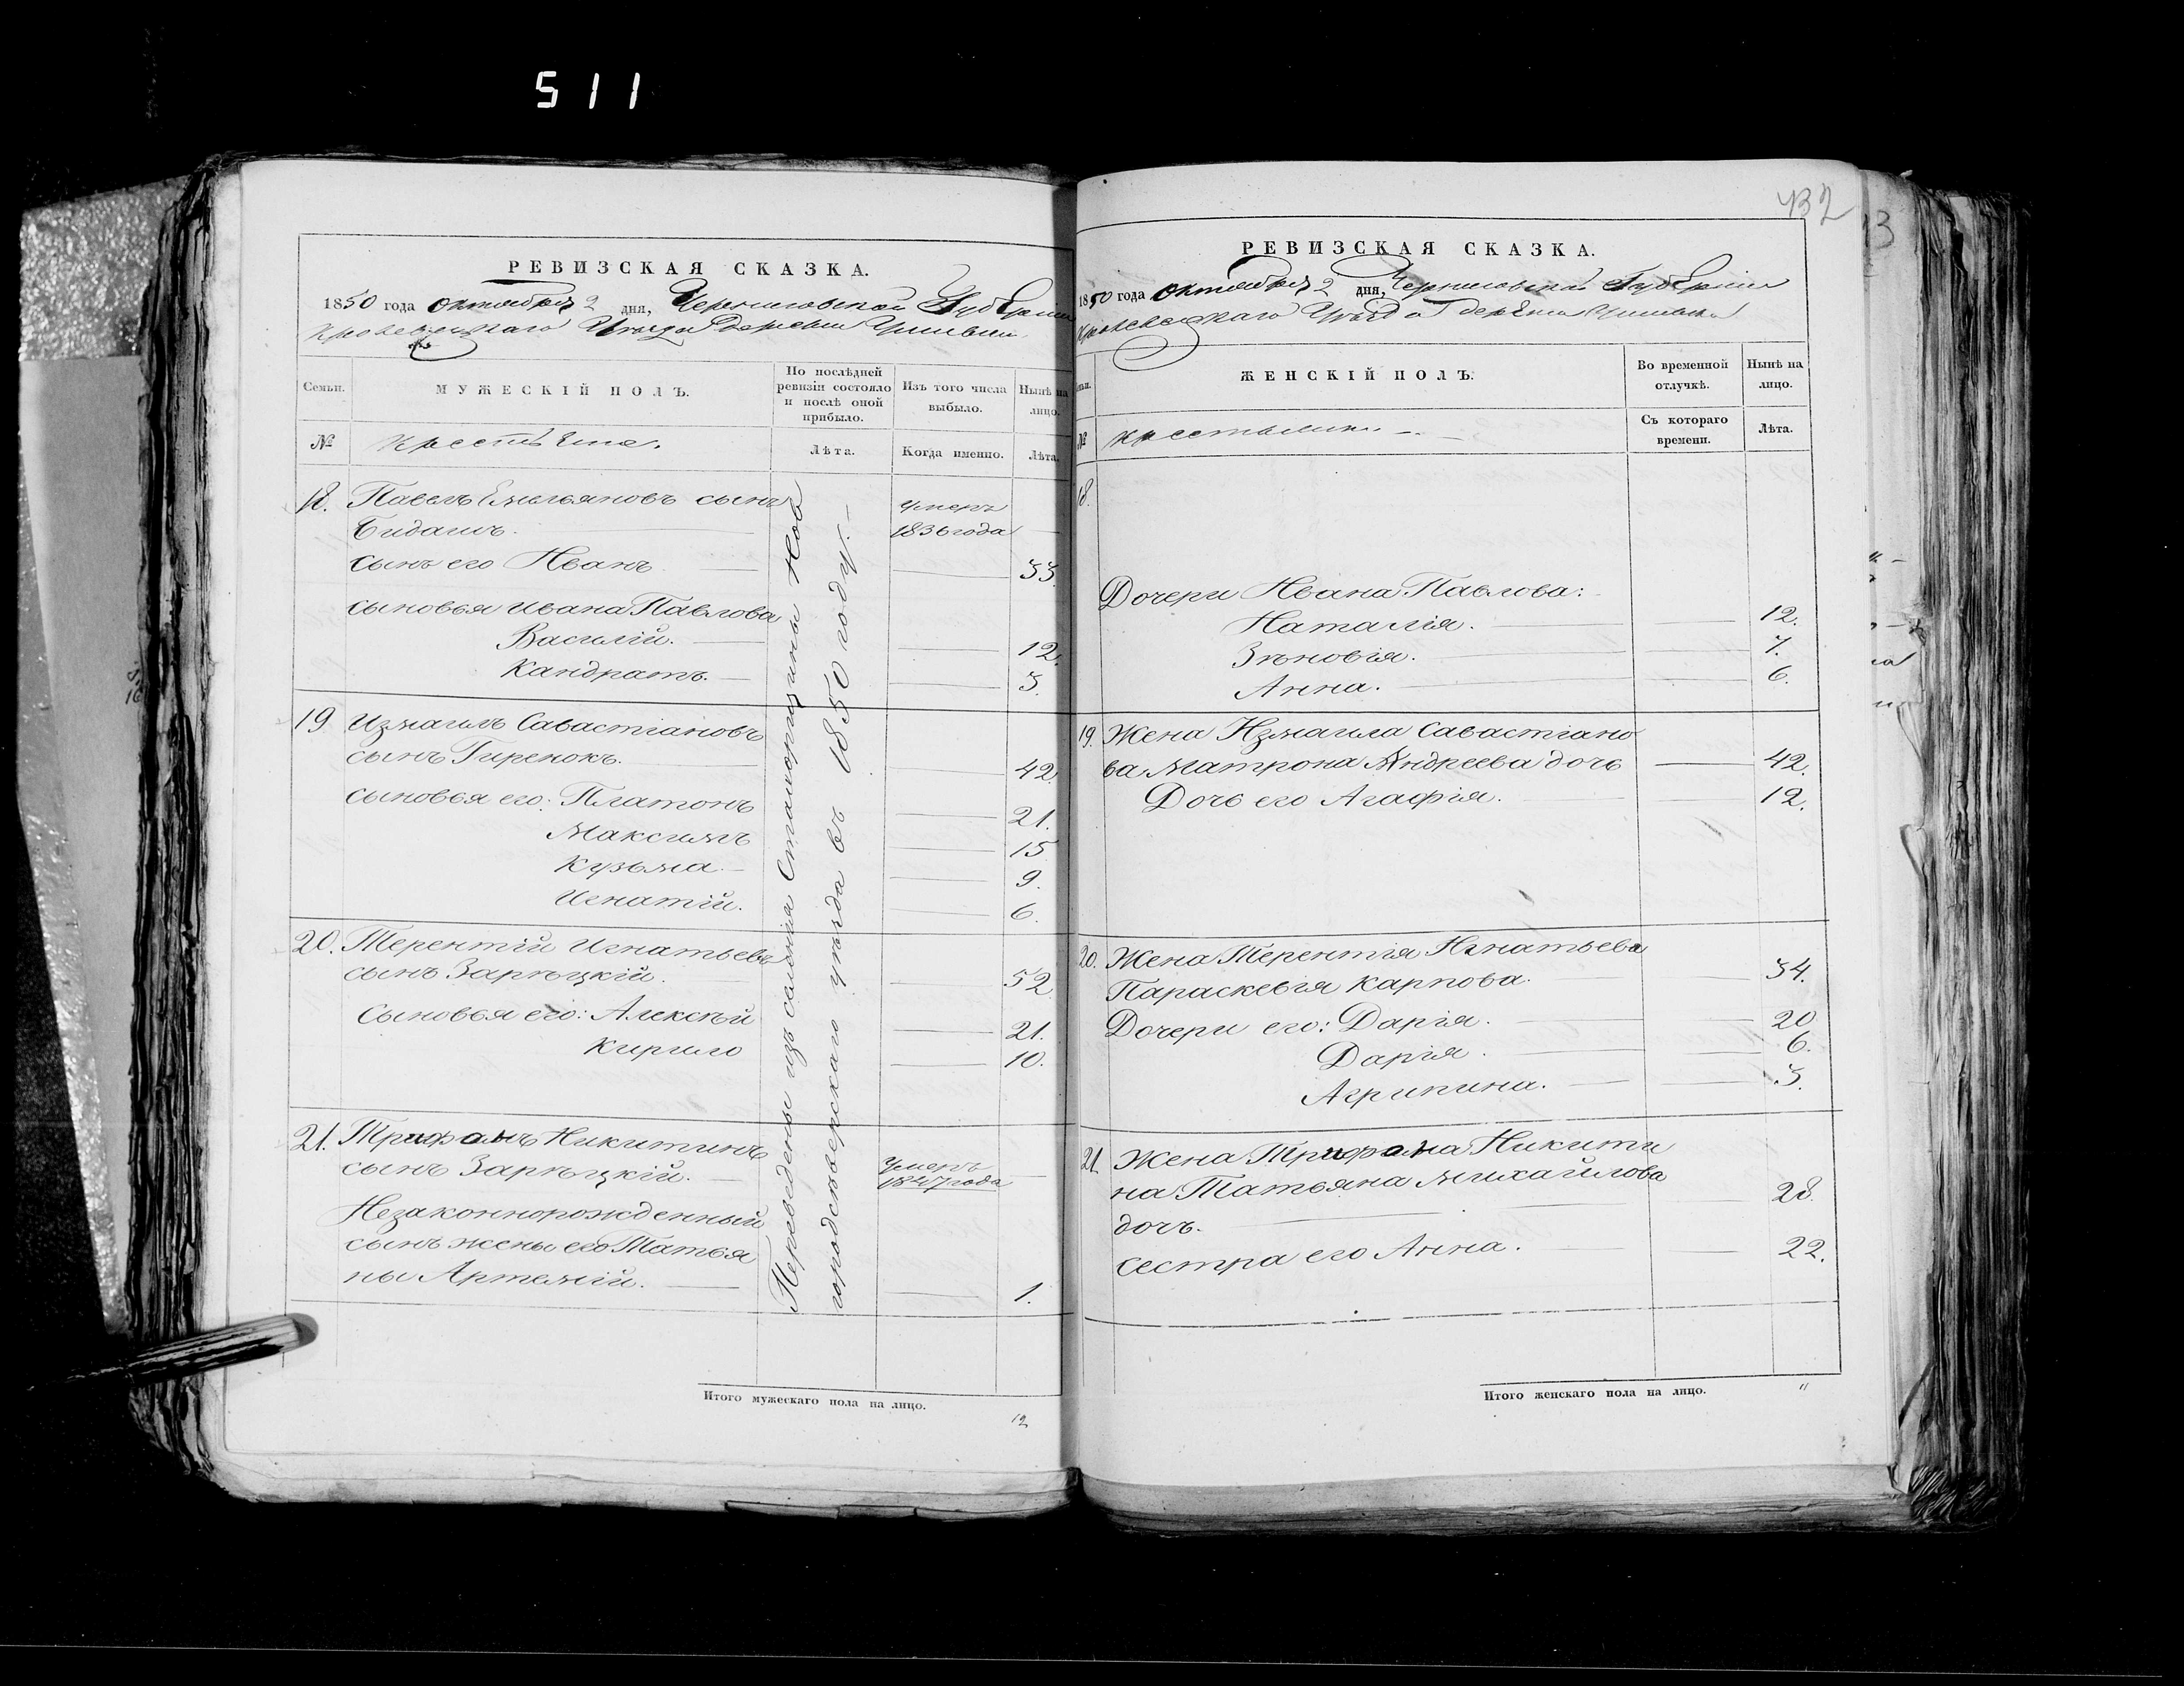 511
РЕВИЗСКАЯ СКАЗКА.
1850 года октября 2 дня, Черниговской Губерніи
Кролевецкаго Уѣзда Деревни
Семьи.
МУЖЕСКІЙ ПОЛЪ.
По послѣдней
ревизіи состояло
и послѣ оной
прибыло.
Изъ того числа
выбыло.
Нынѣ на
лицо.
№
крестьяне.
Лѣта.
Когда именно.
Лѣта.
18. Павелъ Емельяновъ сынъ
Бидашъ.
умеръ
1836 года
сынъ его Иванъ 33.
сыновья Ивана Павлова
Василій. 12.
Кандратъ. 3.
19 Измаилъ Савастіановъ
сынъ Гиренокъ. 42.
сыновья его: Платонъ 21.
Максимъ 15
Кузьма. 9.
Игнатій. 6.
20. Терентій Игнатьевъ
сынъ Зарѣцкій. 52
Сыновья его: Алексѣй 21.
Кирило 10.
21. Трифонъ Никитинъ
сынъ Зарѣцкій.
Умеръ
1847 года
Незаконнорожденный
сынъ жены его Татья
ны Артемій. 1.
Переведены изъ селенія Нов
городсѣверскаго уѣзда въ 1850 году.
Итого мужескаго пола на лицо.
12
432
13
РЕВИЗСКАЯ СКАЗКА.
1850 года октября 2 дня, Черниговской Губерніи
Кролевецкаго Уѣзда деревни
ЖЕНСКІЙ ПОЛЪ.
Во временной
отлучкѣ.
Нынѣ на
лицо.
№
крестьянки
Съ котораго
времени.
Лѣта.
18.
Дочери Ивана Павлова:
Наталія. 12.
Зѣновія. 7.
Анна. 6.
19. Жена Измаила Савастіано
ва Матрона Андреева дочь 42.
Дочь его Агафія. 12.
20. Жена Терентія Игнатьева
Параскевія Карпова. 34.
Дочери его: Дарія. 20
Дарія. 6.
Агрипина. 3.
21. Жена Трифона Никити
на Татьяна Михайлова
дочь. 28.
сестра его Анна. 22.
Итого женскаго пола на лицо.
11